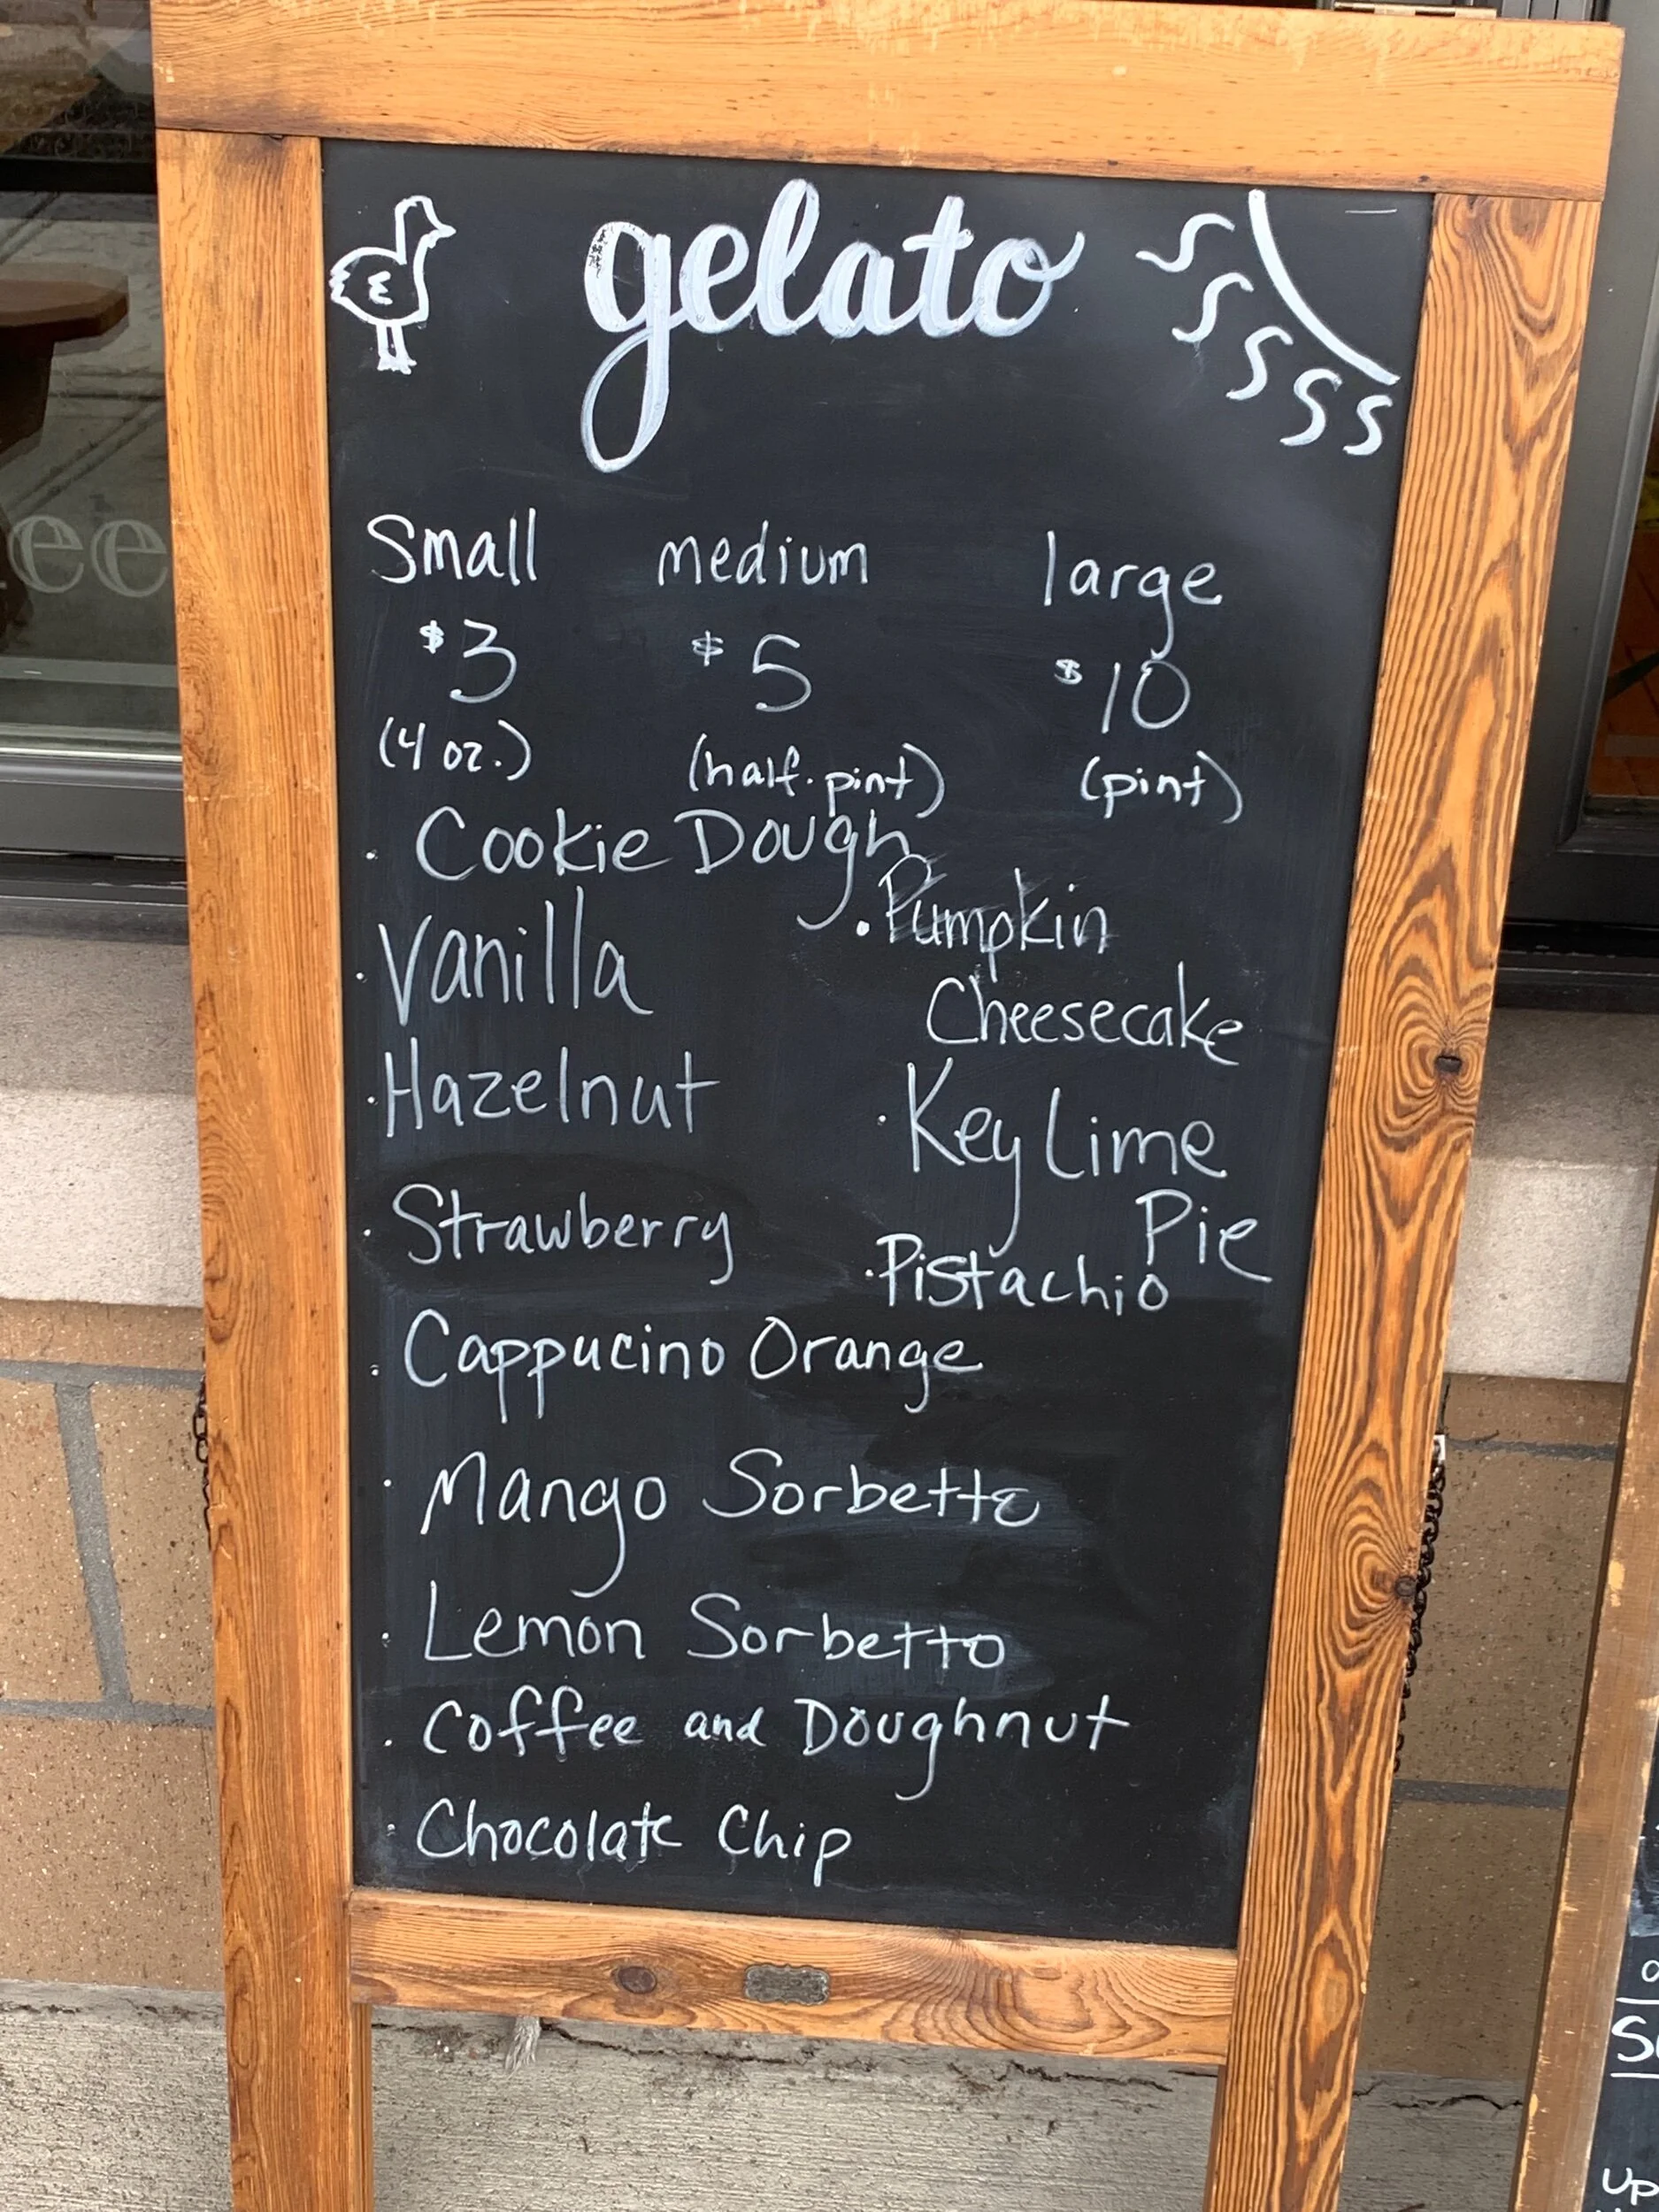 gelato
Small medium large
$3 $5 $10
(4 oz.) (half.pint) (pint)
. Cookie Dough
. Pumpkin
Cheesecake
. Vanilla
. Hazelnut
. Key Lime
Pie
. Strawberry
. Pistachio
. Cappucino Orange
. Mango Sorbetto
. Lemon Sorbetto
. Coffee and Doughnut
. Chocolate Chip
ee
up